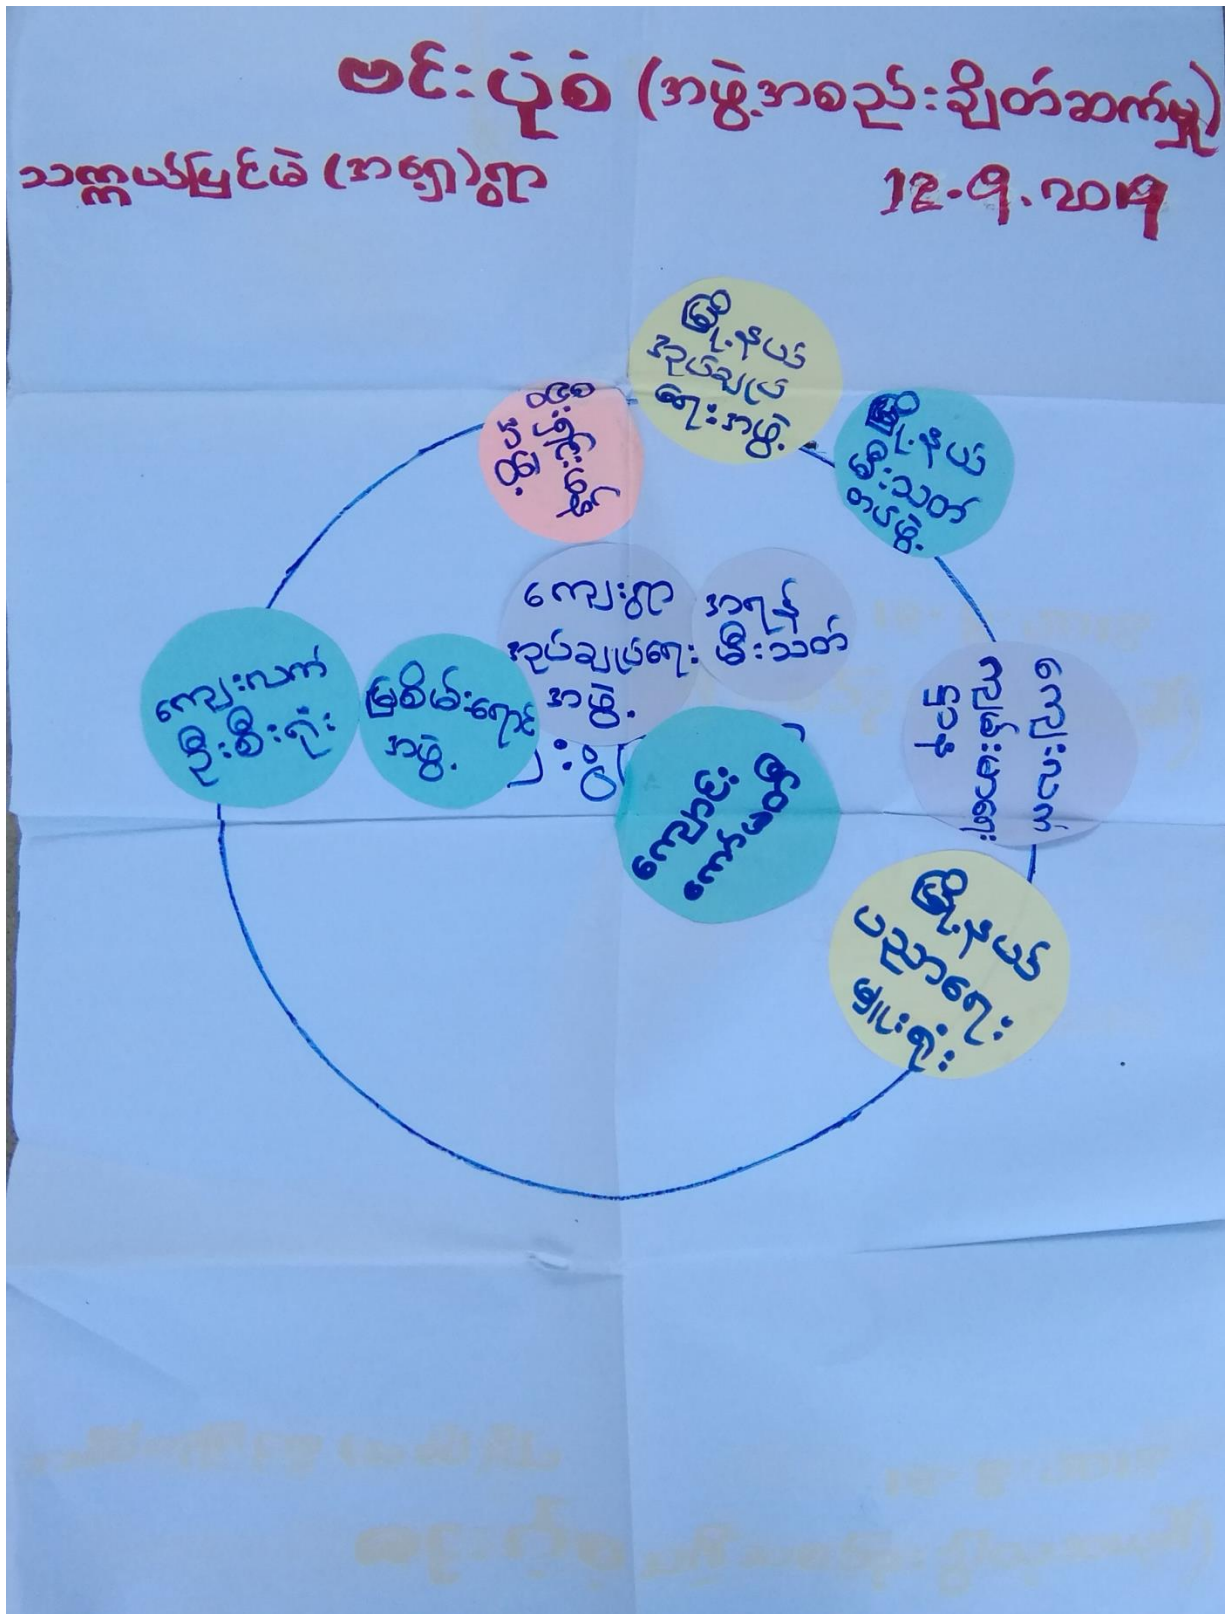 ဗင်းပုံစံ (အဖွဲ့အစည်းချိတ်ဆက်မှု)
သက္ကယ်ပြင်မဲ (အရှေ့)ရွာ
12.9.2019
မြို့နယ်
အုပ်ချုပ်
ရေးအဖွဲ့
မြို့နယ်
မီးသတ်
တပ်ဖွဲ့
ကျေးရွာ
အုပ်ချုပ်ရေး
အဖွဲ့
အရန်
မီးသတ်
ကျေးလက်
ဦးစီးရုံး
မြစိမ်းရောင်
အဖွဲ့
ကျောင်း
ကော်မတီ
ကျေးလက်
ကျန်းမာရေး
ဌာန
မြို့နယ်
ပညာရေး
မှူးရုံး